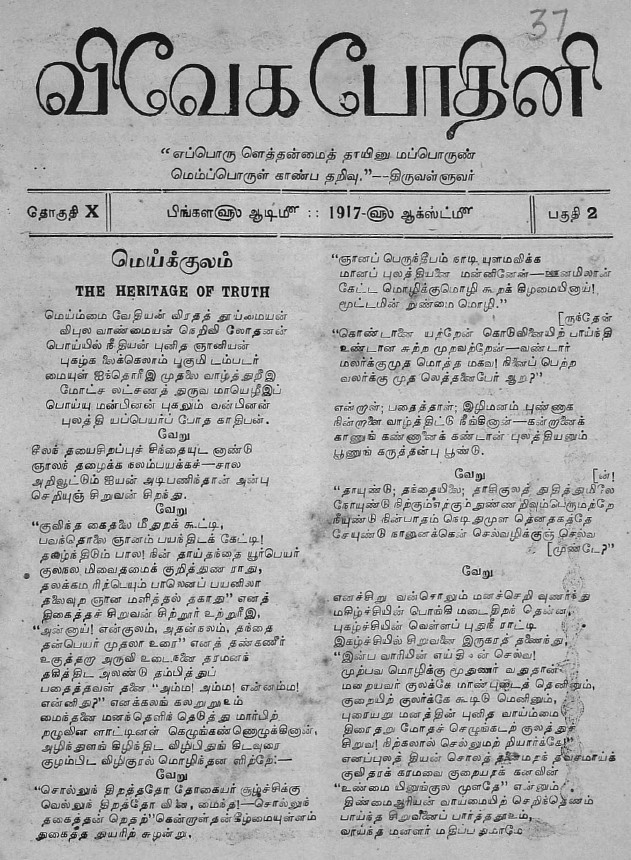 37
விவேக போதினி
“எப்பொரு ளெத்தன்மைத் தாயினு மப்பொருண்
மெம்ப்பொருள் காண்ப தறிவு.”--திருவள்ளுவர்
தோகுதி X
பிங்கள௵ ஆடி௴ :: 1917-௵ ஆகஸ்ட்௴
பகுதி 2
மெய்க்குலம்
THE HERITAGE OF TRUTH
மெய்ம்மை வேதியன் விரதத் தூய்மையன்
விபுல வாண்மையன் நெறிவி லோதனன்
பொய்யில் நீதியன் புனித ஞானியன்
புகழ்க ளைக்கெலாம் புகுமி டம்படர்
மையுள் ஐந்தொரீஇ முதலை வாழ்த்துரீஇ
மோட்ச லட்சணத் துருவ மாயெழீஇப்
பொய்யு மன்பினன் புகலும் வன்பினன்
புலத்தி யப்பெயர்ப் போத காதிபன்.
வேறு
சீலந் தயைசிறப்புச் சிந்தையுட னாண்டு
ஞாலந் தழைக்க நலம்பயக்கச்—சால
அறிவூட்டும் ஐயன் அடிபணிந்தான் அன்பு
செறியுஞ் சிறுவன் சிறந்து.
வேறு
“குவித்த கைதலை மீதுறக் கூட்டி,
பவந்தொலை ஞானம் பயந்திடக் கேட்டி!
தவழ்ந்திடும் பால! நின் தாய்தந்தை யூர்பெயர்
குலநல மிவைதமைக் குறித்துண ராது,
தலக்கம ரித்பெயும் பாலெனப் பயனிலா
தலைவுற ஞான மளித்தல் தகாது” எனத்
திகைத்தச் சிறுவன் சிற்றூர் உற்றுரீஇ,
“அன்னாய்! என்குலம், அதன்நலம், தந்தை
தன்பெயர் முதலா் உரை” எனத் தண்கணீர்
உகுத்தரு அருவி உடைநனை தரமனந்
தகித்திட அலண்டு தம்பித்துப்
பதைத்தவள் தனை “அம்ம! அம்ம! என்னம்ம!
என்னிது?” எனக்கலங் கலறுறூஉம்
மைந்தனை மனந்தெளிந் தெடுத்து மார்பிற்
றழுவின ளாட்டினள் கெழுங்கண்ணெழுக்கினான்,
அழிந்துளங் கிழிந்திட விழிபிதுங் கிடவுரை
குளம்பிட விழிகுரல் மொழிந்தன ளிற்றே:—
வேறு
“சொல்லுந் திறத்ததோ தோகையர் சூழ்ச்சிக்கு
வெல்லுந் திறத்தோ விணை, மைந்த!—சொல்லுந்
தகைத்தன் றெதற்”கென்றாள்தன்கீழ்மையுன்னம்
துகைத்த துயரிற் சுழன்று.
“ஞானப் பெருந்தீபம் நாடி யுளமவிக்க
மானப் புலத்தியனை மன்னினேன்—ஊனமிலான்
கேட்ட மொழிக்குமொழி கூறக் கிழமையினாய்!
மூட்டமின் றுண்மை மொழி.”
[ருந்தேன்
“கொண்டானை யற்றேன் கொடுவினையிற் பாய்ந்தி
உண்டான சுற்ற முறவற்றேன்—வண்டார்
மலர்க்குமுத மொத்த மகவ! நினைப் பெற்ற
வலர்க்கு முத லெத்தனைபேர் ஆற?”
என்றாள்; பதைத்தாள்; இழிமனம் புண்ணாக
நின்றானை வாழ்த்திட்டு நீங்கினான்—கன்றானைக்
காணுங் கண்ணானைக் கண்டான் புலத்தியனும்
பூணுங் கருத்தன்பு பூண்டு.
வேறு
[ன்!
“தாயுண்டு; தந்தையிலை; தாதிகுலத் துதித்துமிலே
நோயுண்டு நிற்கும்எற்கும் துண்ணறிவும்பெருமற்றே
நீயுண்டு நின்பாதம் நெடிதுமுள தெனதகத்தே
சேயுண்டு நானுனக்கென் செல்வழிக்குஞ் செல்வ
[முண்டே?”
வேறு
எனச்சிறு வன்சொலும் மனச்செறி வுணர்ந்து
மகிழ்ச்சியின் பொங்கி மடைதிறந் தென்ன,
புகழ்ச்சியின் வெள்ளப் புதுநீ ராட்டி
இகழ்ச்சியில் சிறுவனை இருகரத் தணைந்து,
“இன்ப வாரியின் எய்திஎன் செல்வ!
முற்பவ மொழிக்கு மூதுணர் வதுதான்
மறையவர் குலக்கே மாண்புடைத் தெனினும்,
குறையிற் குலர்க்கே கூடிடு மெனினும்,
புரையறு மனத்தின் புனித வாய்ம்மை
திரைதறு மோதச் செழுங்கடற் குலத்துச்
சிறுவ! நிற்கலால் செல்லுமற் றியார்க்கே!”
எனப்புலத் தியன் சொலத் தனமறந் திவசமாய்க்
குவிதரக் கரமவை குறையறாக் கனவின்
“உண்மை யினுங்குல முளதே” என்னும்
திண்மை அரியன் வாய்மையிற் செறிந்தெணம்
பாய்ந்த சிறுவனைப் பார்த்ததூஉம்,
வாய்ந்த மன்னர் மதிப்ப தாமே